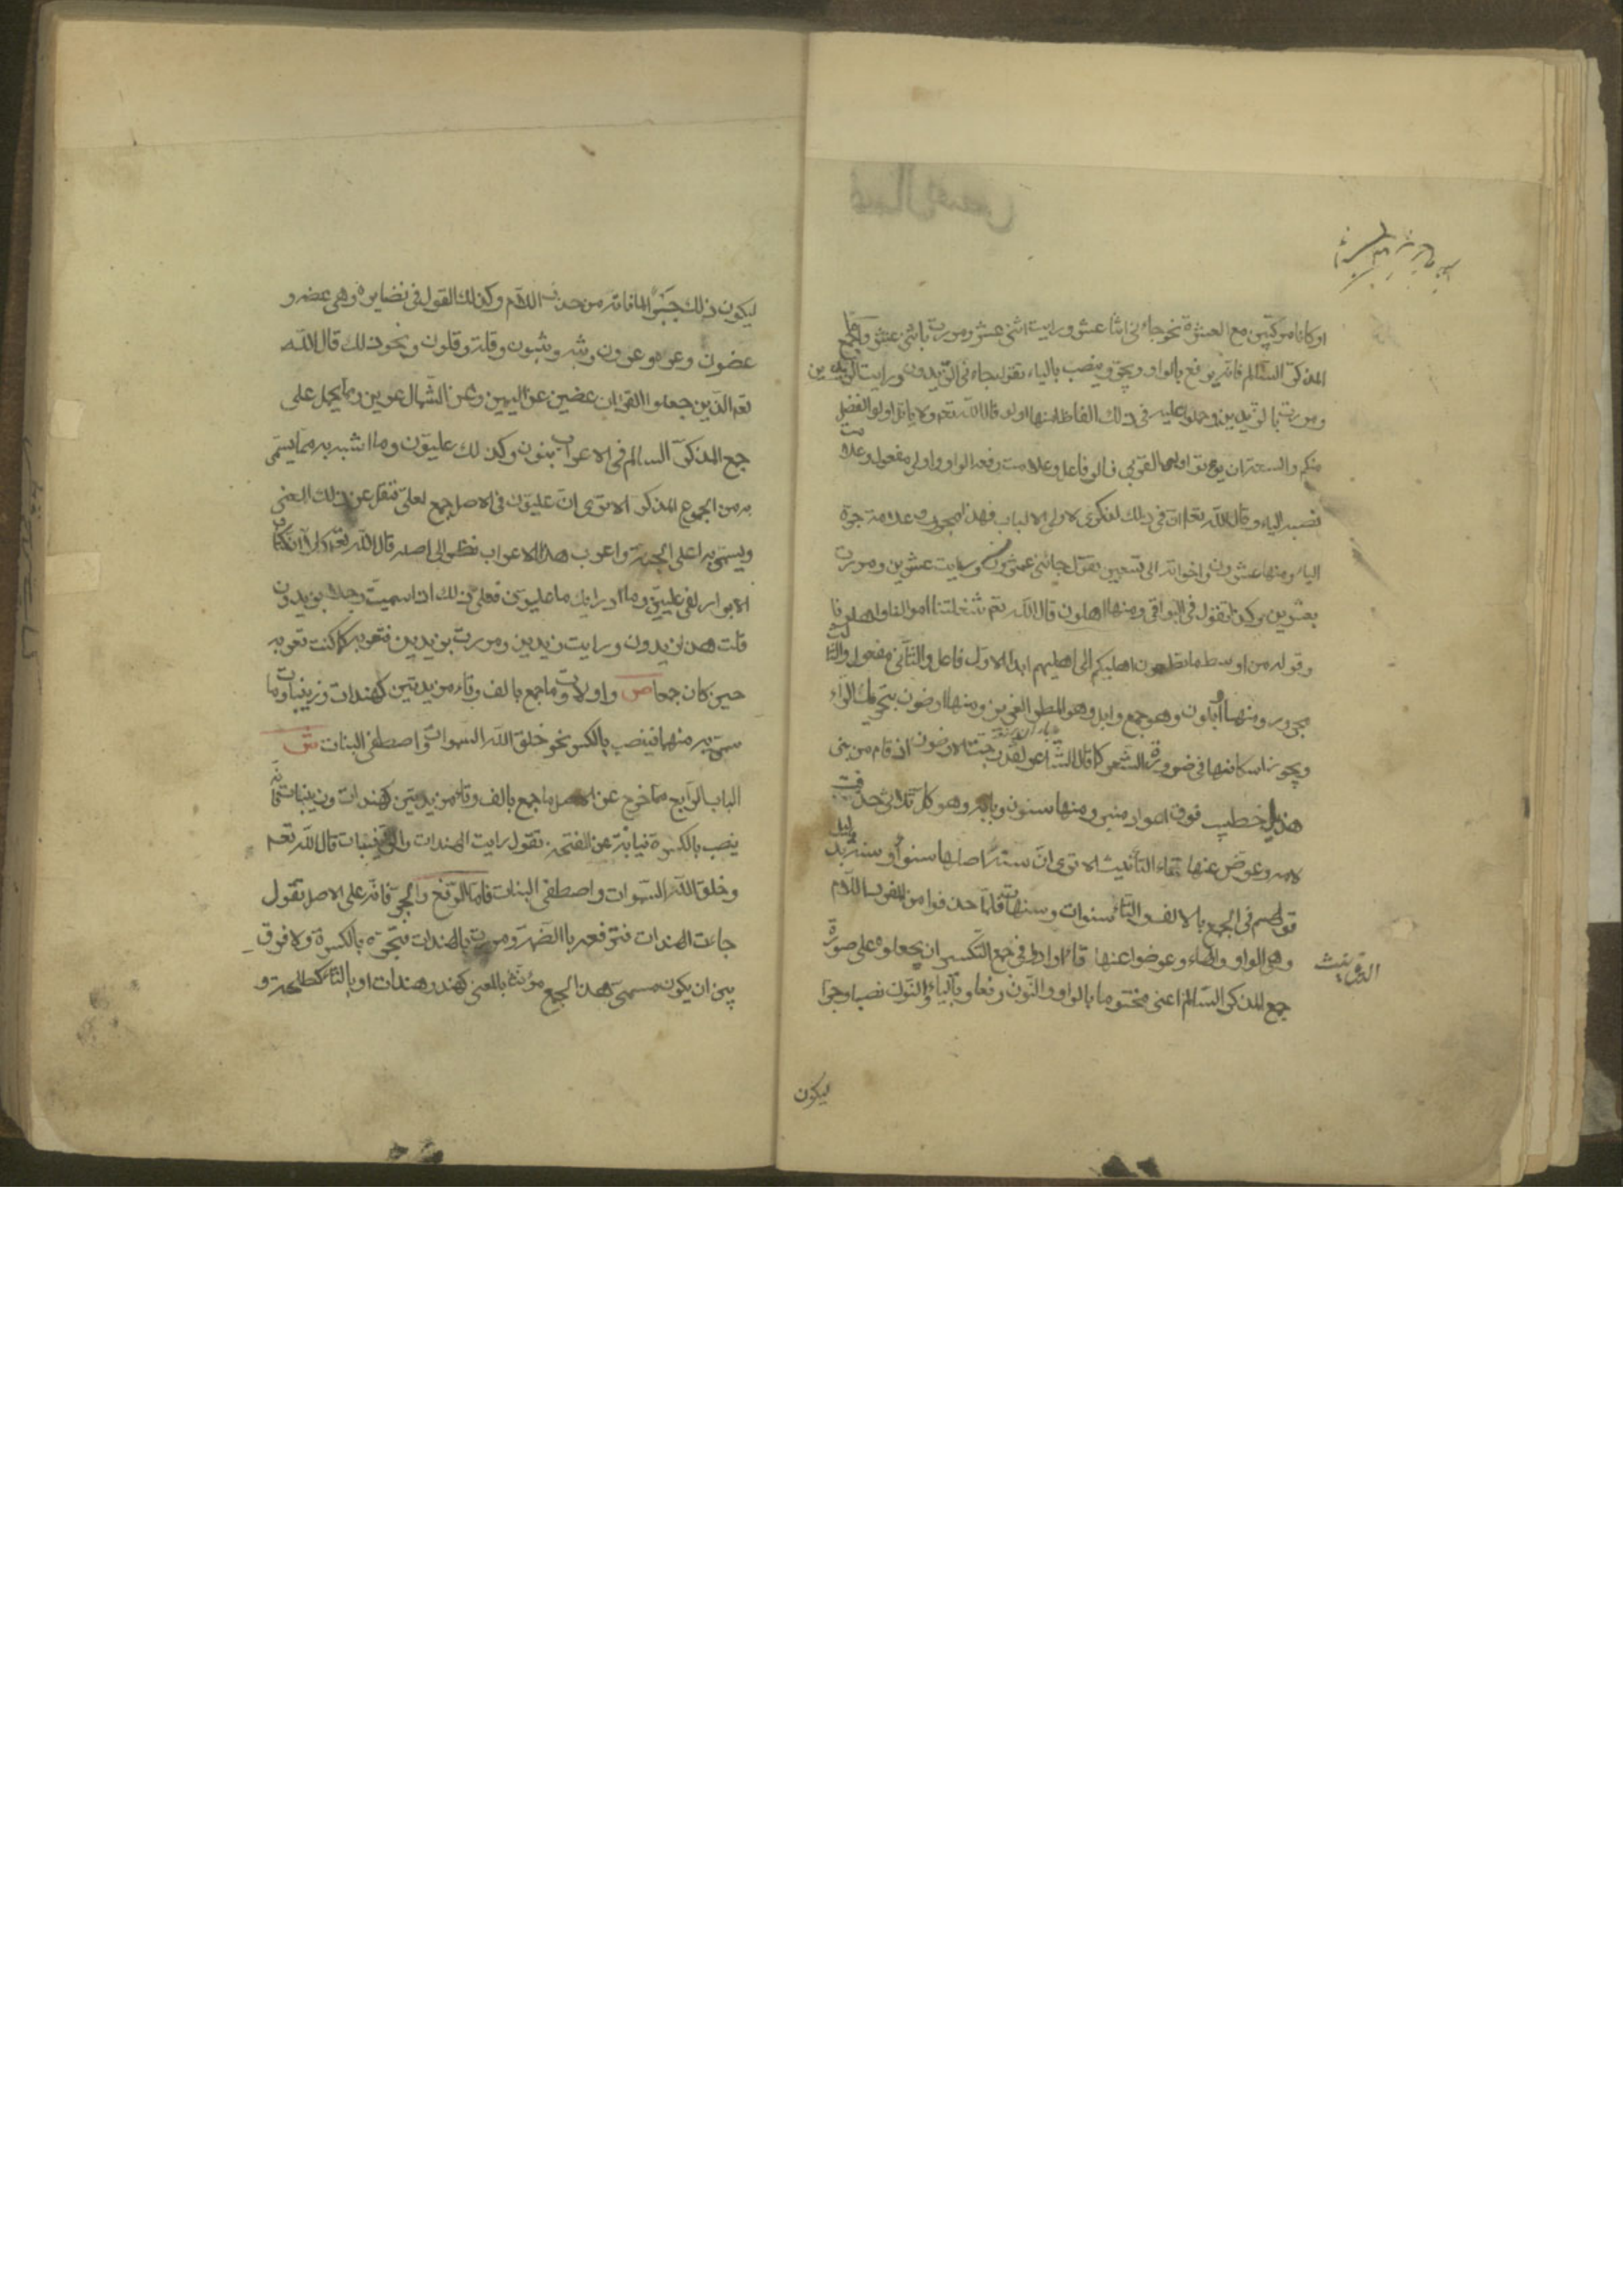 او كانا مركبين مع العشرة نحو جاءنى اثنا عشر ورايت اثنى عشر ومررت باثنى عشر واما جمع
المذكر السالم فانه يرفع بالواو ويجر وينصب بالياء تقول جاءنى الزيدون ورايت الزيدين
ومررت بالزيدين وحملوا عليه فى ذلك الفاظا منها اولو قال الله تعم ولا ياتل اولو الفضل
منكم والسعة ان يؤتوا اولى القربى فاولو فاعل وعلامت رفعه الواو واولى مفعول وعلامت
نصبه الياء وقال الله تعا ان فى ذلك لذكرى لاولى الالباب فهذا مجرور وعلامة جره
الياء ومنها عشرون واخواته الى تسعين تقول جاءنى عشرون ورايت عشرين ومررت
بعشرين وكذا تقول فى البواقى ومنها اهلون قال الله تعم شغلتنا اموالنا واهلونا
وقوله من اوسط ما تطعمون اهليكم الى اهليهم ابدا الاول فاعل والثانى مفعول والثالث
مجرور ومنها وابلون وهو جمع وابل وهو المطر الغزير ومنها ارضون بتحريك الراء
ويجوز اسكانها فى ضرورة الشعر كما قال الشاعر لقد ضجت الارضون اذ قام من بنى
هذيل خطيب فوق اعواد منبر ومنها سنون وبابه وهو كل ثلاثى حذفت
لامه وعوض عنها هاء التانيث الا ترى ان سنة اصلها سنو او سنه بدليل
قولهم فى الجمع بالالف والتاء سنوات وسنهات فلما حذفوا من المفرد اللام
وهى الواو والهاء وعوضوا عنها تاء التانيث ارادوا فى جمع التكسير ان يجعلوه على صورة
جمع المذكر السالم اعنى مختوما بالواو والنون رفعا وبالياء والنون نصبا وجرا
ليكون
ليكون ذلك جبرا لما فاته من حذف اللام وكذلك القول فى نضايره وهى عضه و
عضون وعزه وعزون وثبه وثبون وقلة وقلون ونحو ذلك قال الله
تعم الذين جعلوا القران عضين عن اليمين وعن الشمال عزين ومما يحمل على
جمع المذكر السالم فى الاعراب بنون وكذلك عليون وما اشبهه مما يسمى
به من الجموع المذكر الا ترى ان عليون فى الاصل جمع لعلى فنقل عن ذلك المعنى
ويسمى به اعلى الجنة واعرب هذا الاعراب نظرا الى اصله قال الله تعم كلا ان كتاب
الابرار لفى عليين وما ادراك ما عليون فعلى ذلك اذا سميت رجلا بزيدون
قلت هذا زيدون ورايت زيدين ومررت بزيدين فتعربه كما كنت تعربه
حين كان جمعا ص واولات وما جمع بالف وتاء مزيدتين كهندات وزينبات وما
سمى به منهما فينصب بالكسر نحو خلق الله السموات واصطفى البنات ش
الباب الرابع مما خرج عن الاصل ما جمع بالف وتاء مزيدتين كهندات وزينبات فانه
ينصب بالكسرة نيابة عن الفتحة تقول رايت الهندات والزينبات قال الله تعم
وخلق الله السموات واصطفى البنات فاما الرفع والجر فانه على الاصل تقول
جاءت الهندات فترفعه بالضمة ومررت بالهندات فتجره بالكسرة ولا فرق
بين ان يكون مسمى هذا الجمع مؤنثا بالمعنى كهند وهندات او بالتاء كطلحة و